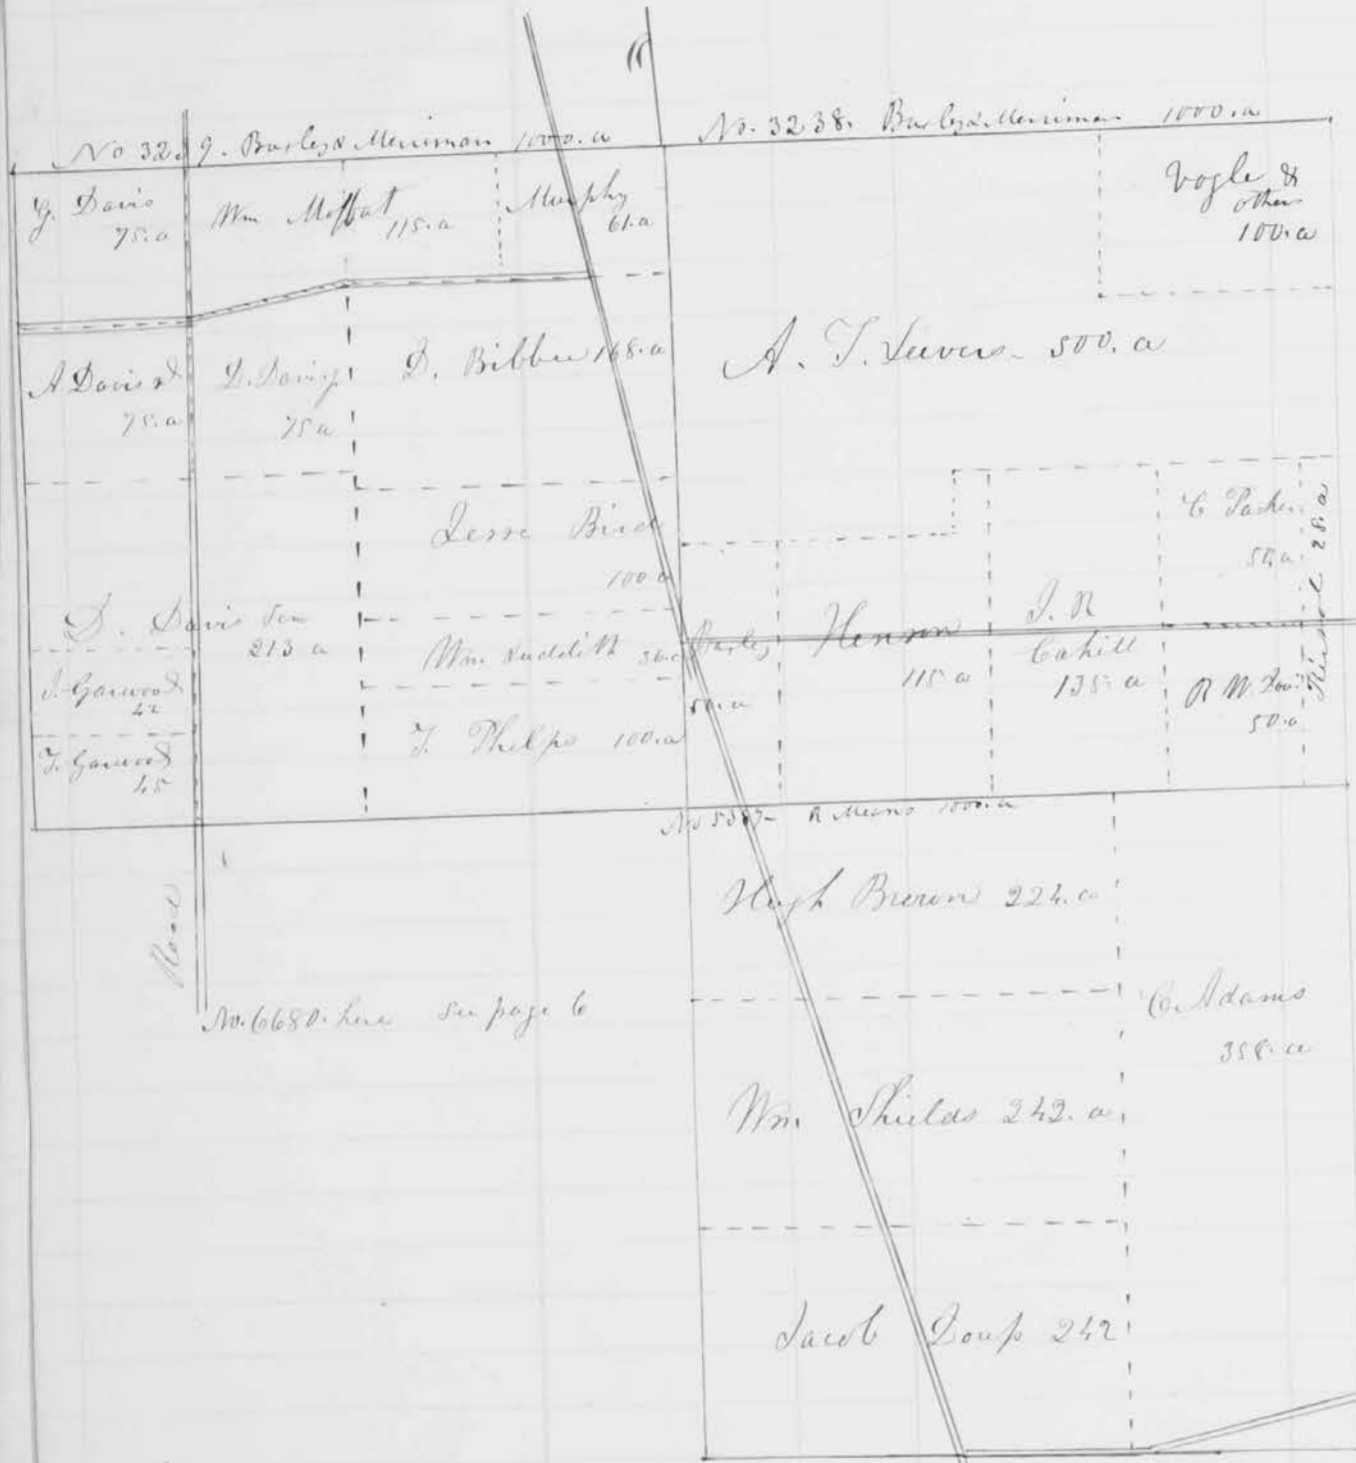 No 32 9. Bayley & Merriman 1000.a
No. 3238. Bayley & Merriman 1000.a
G. Davis
75.a
Wm Moffat
115.a
Murphy
61.a
Vogle &
others
100.a
A Davis
75.a
D. Davis
75 a
D. Bibbee 168.a
A. T. 500. a
Jesse Bird
100 a
C Parker
50.a
28.a
D. Davis Sen
213 a
Wm. Suddith 36.a
50.a
Henson
115 a
J. R
Cahill
135 a
R W
50.a
J. Garwood
42
J. Garwood
45
J. Phelps 100.a
No 5387- R Means 1000.a
Hugh Brown 224.a
Road
No. 6680. here See page 6
C. Adams
358.a
Wm. Shields 242.a
Jacob Doup 242